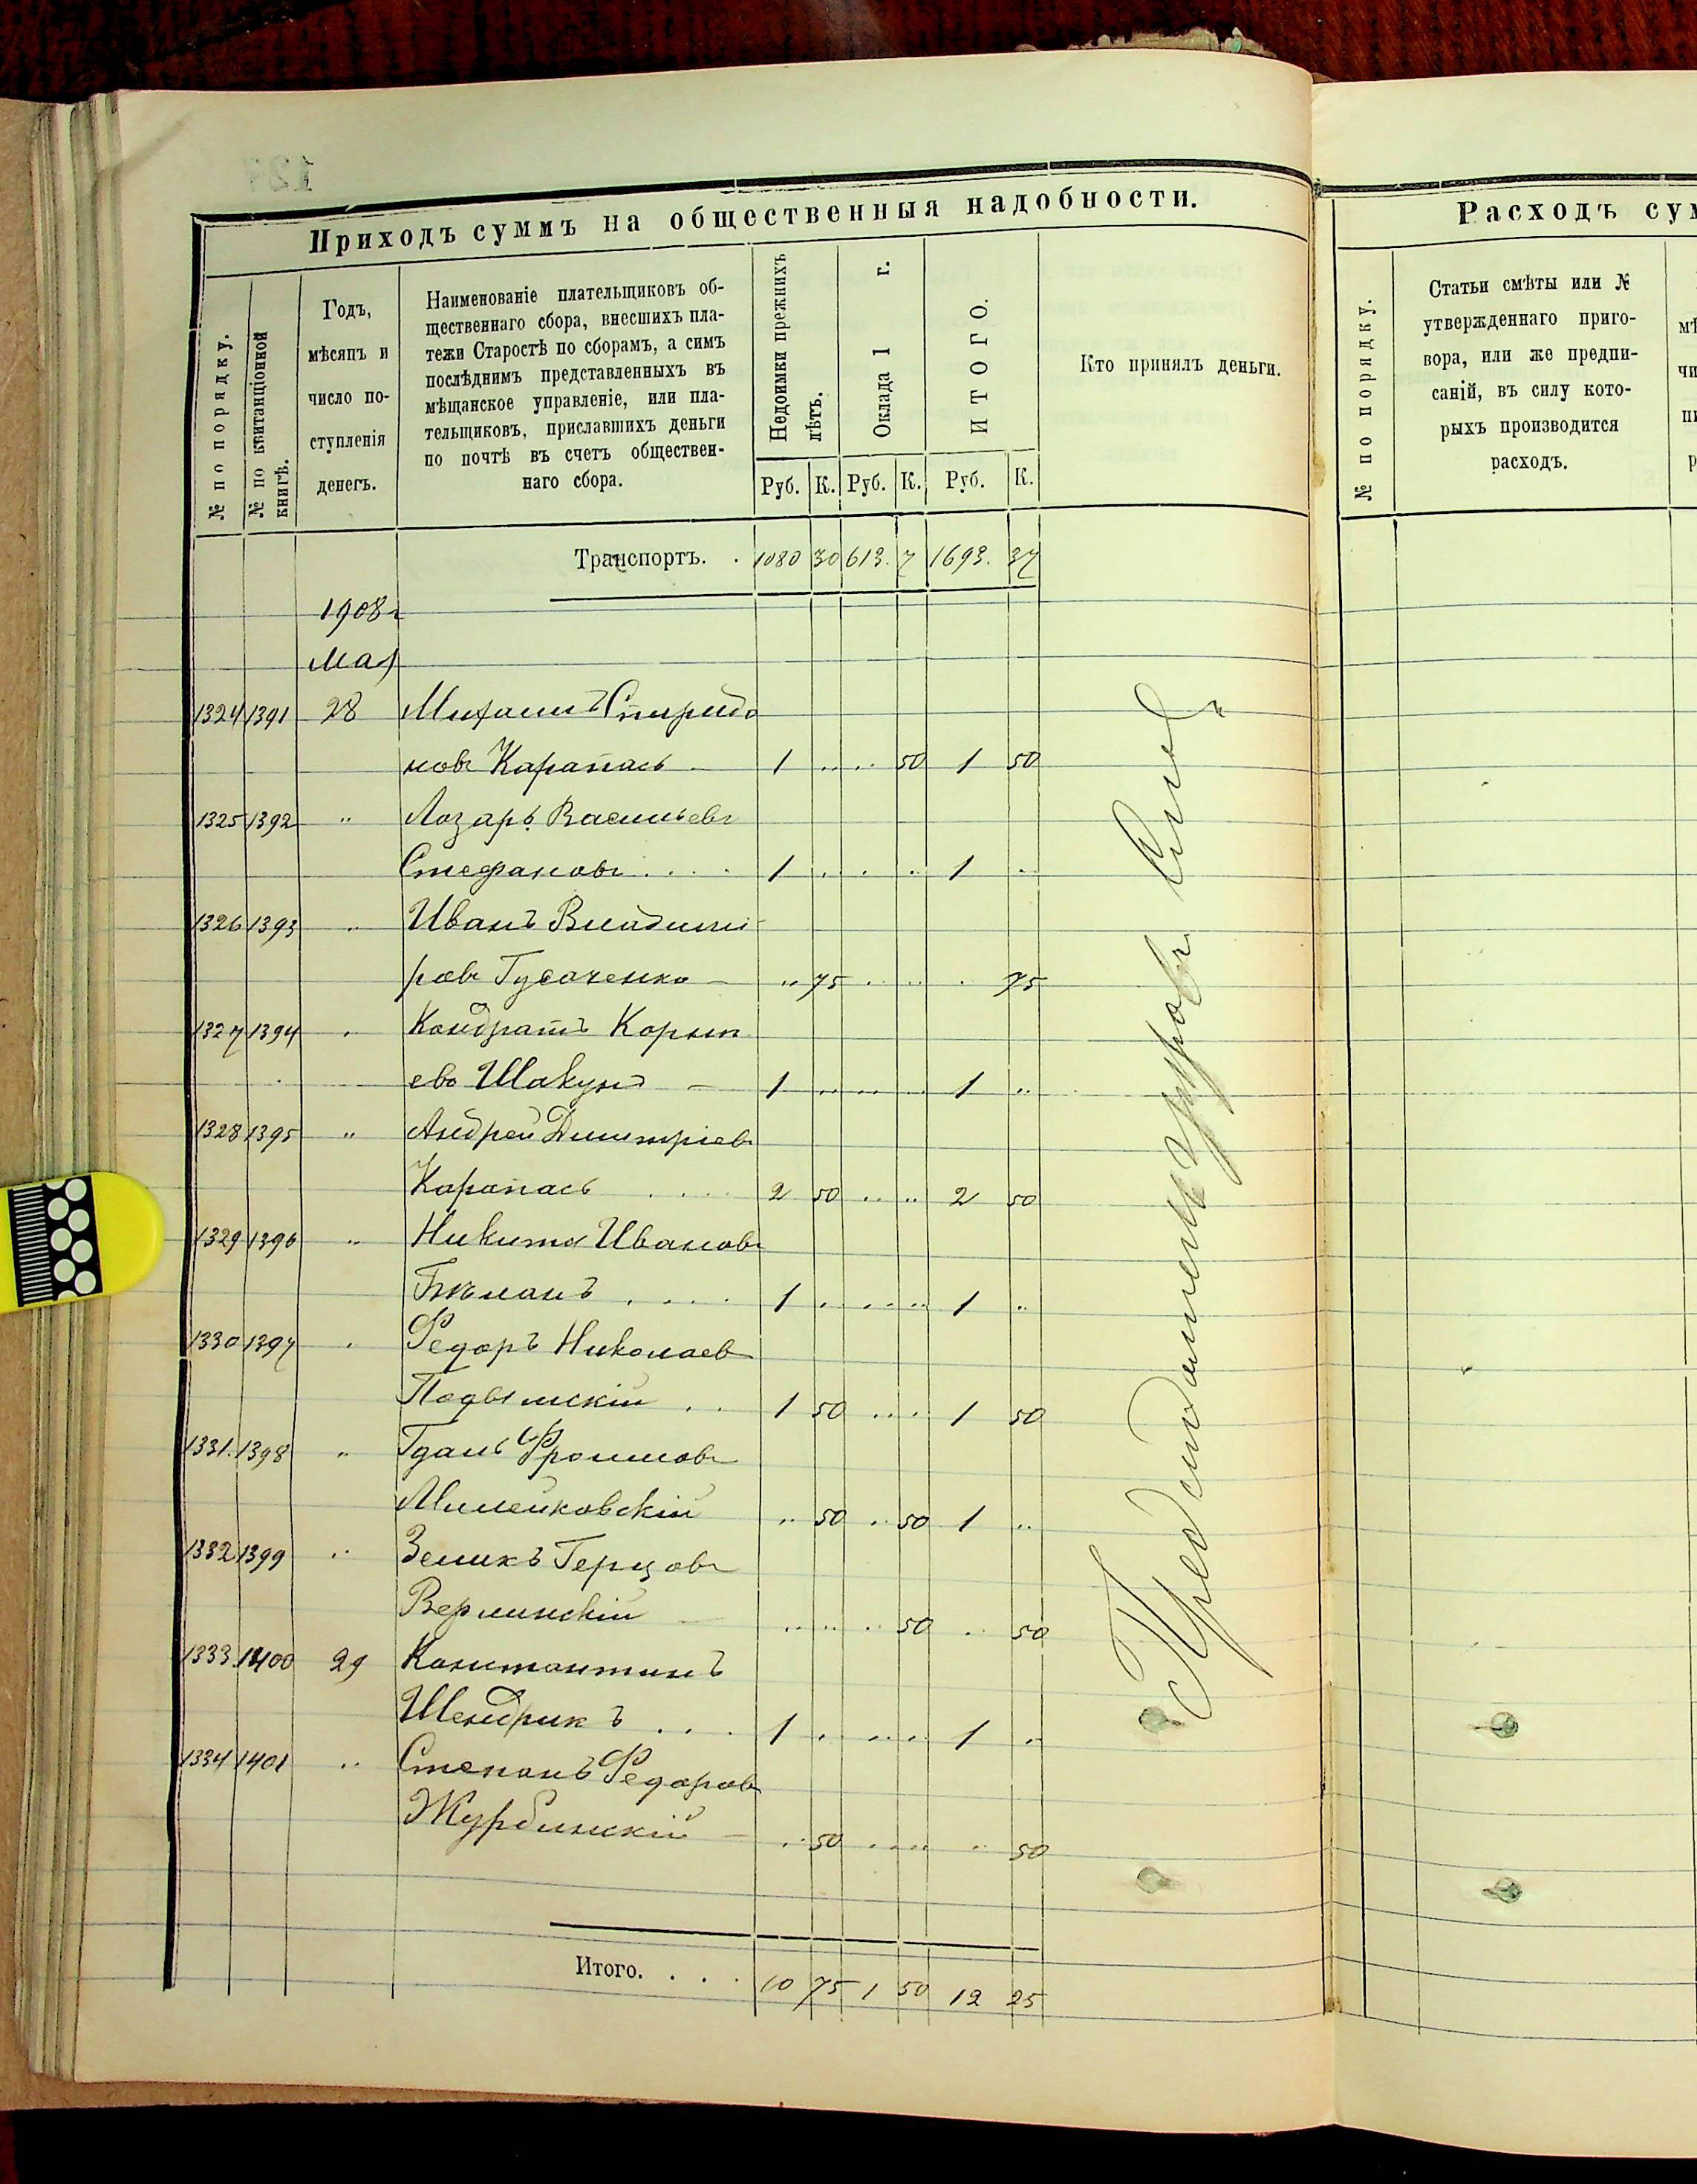 Приходъ суммъ на общественныя надобности.
№ по порядку.
№ по квитанціонной книгѣ.
Годъ,
мѣсяцъ и
число по-
ступленія
денегъ.
Наименованіе плательщиковъ об-
щественнаго сбора, внесшихъ пла-
тежи Старостѣ по сборамъ, а симъ
послѣднимъ представленныхъ въ
мѣщанское управленіе, или пла-
тельщиковъ, приславшихъ деньги
по почтѣ въ счетъ обществен-
наго сбора.
Недоимки прежнихъ
лѣтъ.
Оклада 1 г.
ИТОГО.
Руб. К. Руб. К. Руб. К.
Кто принялъ деньги.
Транспортъ. . 1080 30 613. 7 1693. 37
1908 г
Мая
1324 1391 28 Михаилъ Спиридо
новъ Карапась 1 .. .. 50 1 50
1325 1392 " Лозарь Васильевъ
Стефановъ . . . . 1 . . .. 1 ..
1326 1393 " Иванъ Владими
ровъ - " 75 .. .. . 75
1327 1394 " Кондратъ Корни
евъ Шакунъ - 1 .. .. .. 1 ..
1328 1395 " Андрей Димитріевъ
Карапась . . . . 2 50 .. .. 2 50
1329 1396 " Никита Ивановъ
. . . . 1 . .. .. 1 ..
1330 1397 " Федоръ Николаевъ
. . 1 50 .. .. 1 50
1331. 1398 " Фроимовъ
Милейковскій .. 50 .. 50 1 ..
1332 1399 " Зеликъ Герцовъ
Верлинскій .. .. . 50 .. 50
1333 1400 29 Константинъ
Шендрикъ . . . 1 . .. .. 1 ..
1334 1401 " Степанъ Федоровъ
Журбинскій - .. 50 .. .. .. 50
Итого. . . . 10 75 1 50 12 25
Расходъ сум
№ по порядку.
Статьи смѣты или №
утвержденнаго приго-
вора, или же предпи-
саній, въ силу кото-
рыхъ производится
расходъ.